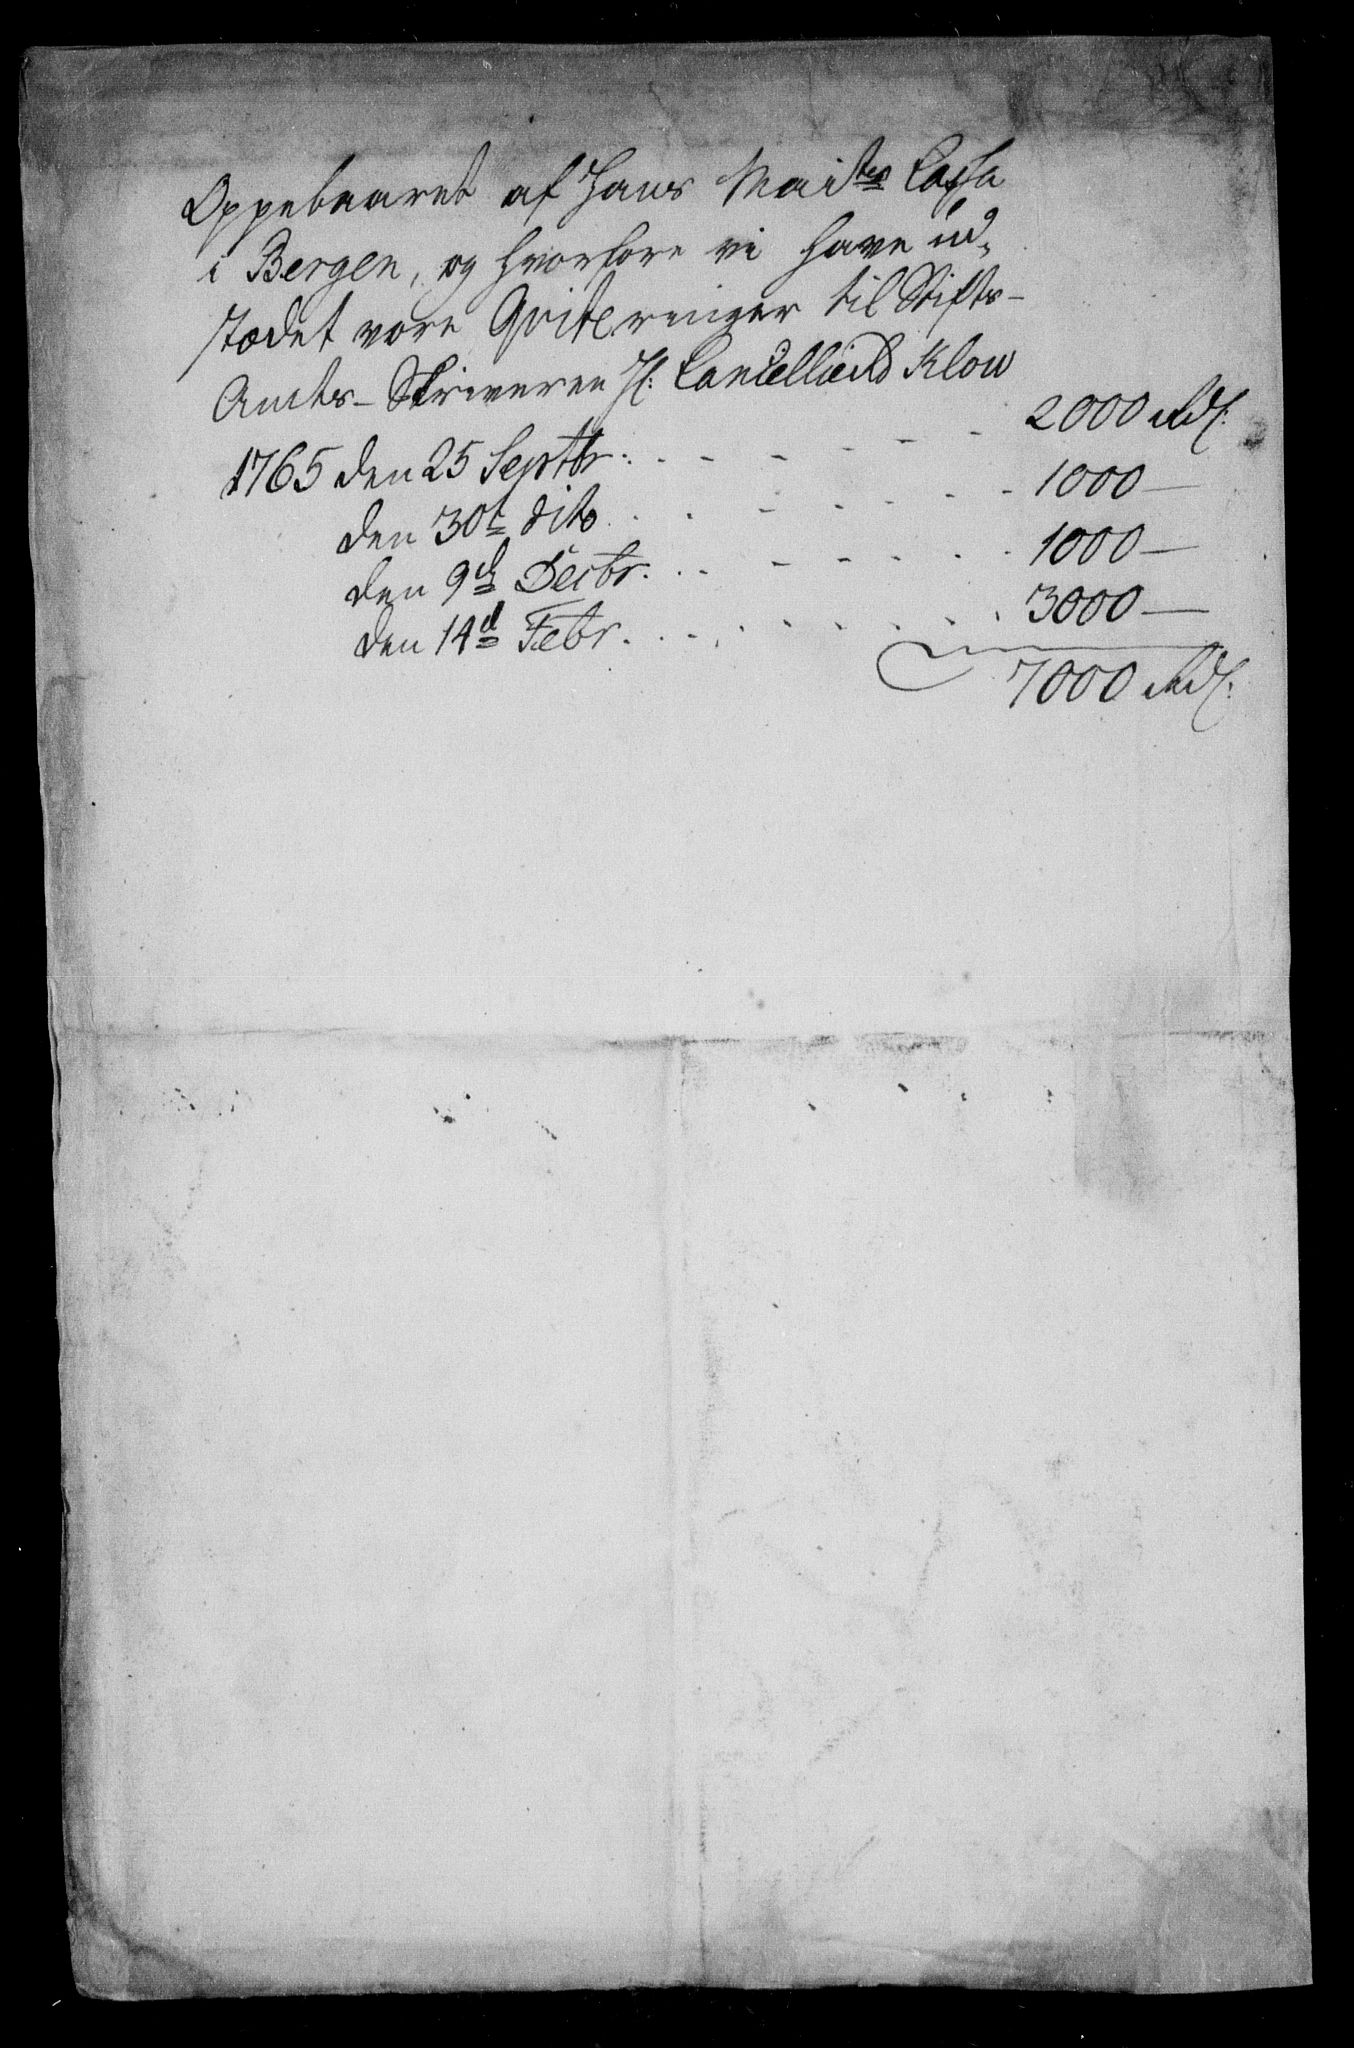 Oppebaaret af Hans Maites Cassa
i Bergen, og hvorfore vi have ud-
stædet vore Qviteringer til Stifts-
Amts-Skriveren H: Cancelliérd Klow
1765 den 25 Septbr: . - - - - - - 2000 Rdl:
den 30t dito . . - . - . - . 1000 —
den 9d Decbr. . . - - - - . . 1000 —
den 14d Febr. . . . . . . . . . 3000 —
7000 Rdl: